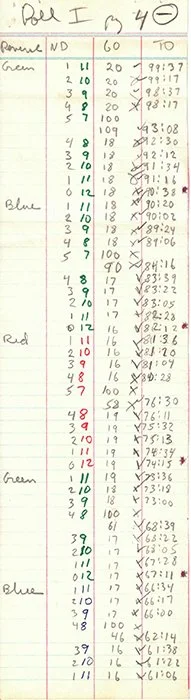 Poll I By 4 ⊖
Reverse ND GO TO
Green 1 11 20 99:37
2 10 20 99:17
3 9 20 98:37
4 8 20 98:17
5 7 100
109 93:08
4 8 18 92:30
3 9 18 92:12
2 10 18 91:34
1 11 18 91:16
0 12 18 90:38 *
Blue 1 11 18 90:20
2 10 18 90:02
3 9 18 89:24
4 8 18 89:06
5 7 100
90 84:16
4 8 17 83:39
3 9 17 83:22
2 10 17 83:05
1 11 17 82:28
0 12 16 82:12 *
Red 1 11 16 81:36
2 10 16 81:20
3 9 16 81:04
4 8 16 80:28
5 7 100
58 76:30
4 8 19 76:11
3 9 19 75:32
2 10 19 75:13
1 11 19 74:34
0 12 19 74:15 *
Green 1 11 19 73:36
2 10 18 73:18
3 9 18 73:00
4 8 100
61 68:39
3 9 17 68:22
2 10 17 68:05
1 11 17 67:28
0 12 17 67:11 *
Blue 1 11 17 66:34
2 10 17 66:17
3 9 17 66:00
4 8 100
46 62:14
3 9 16 61:38
2 10 16 61:22
1 11 16 61:06